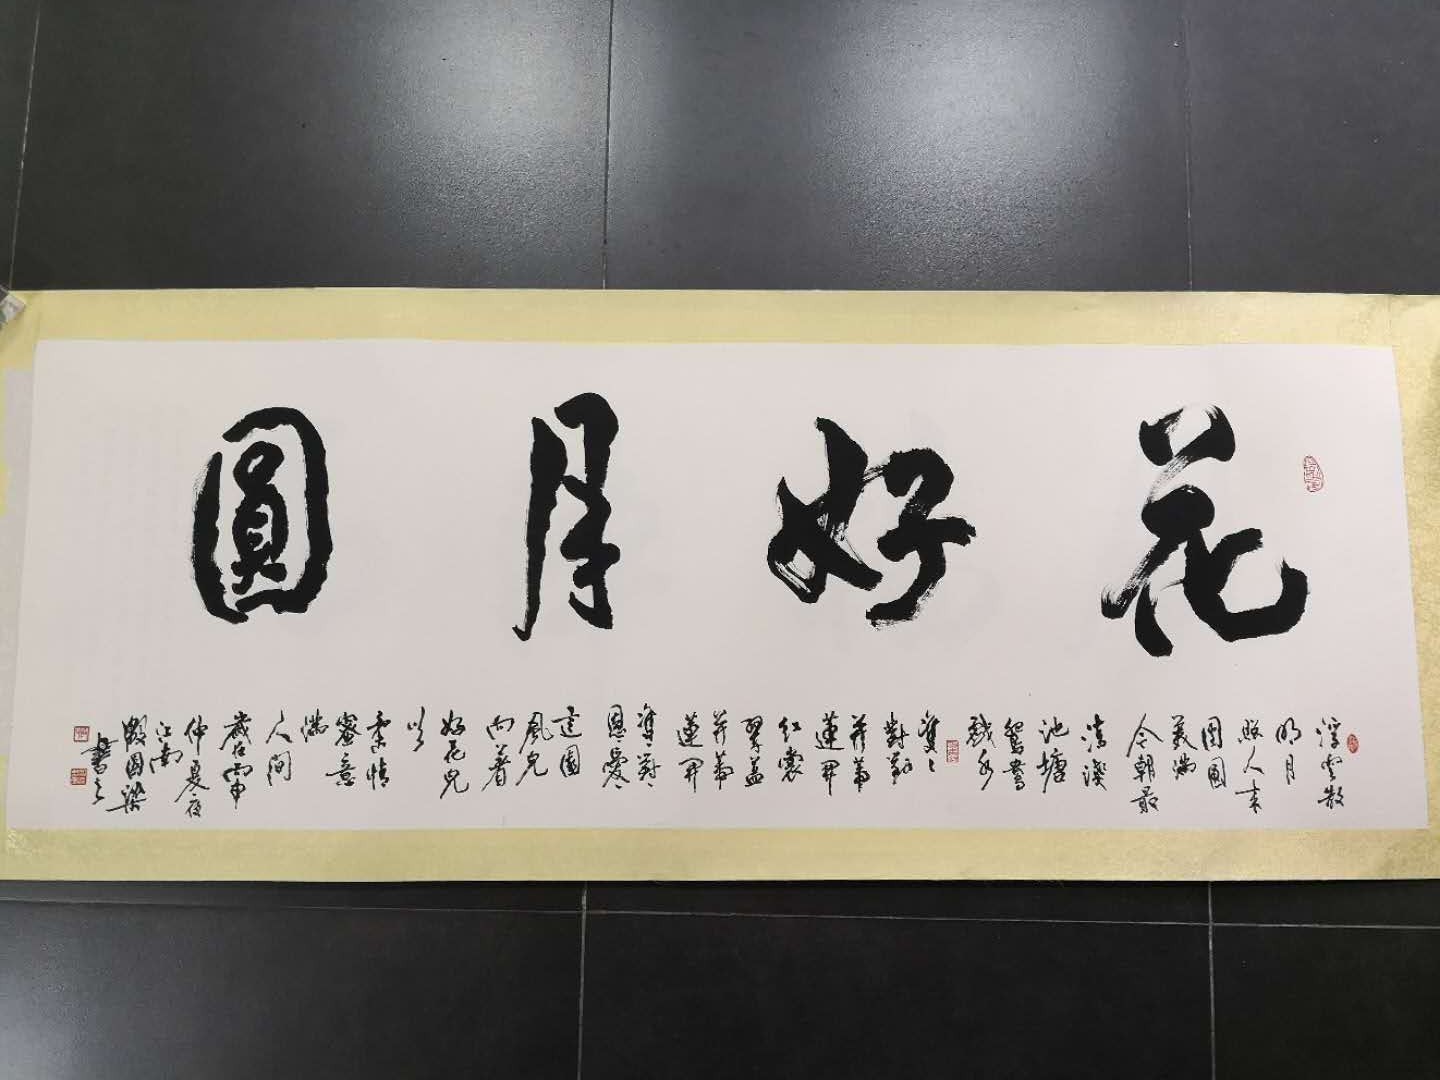 花好月圓
浮雲散
明月
照人来
團圓
美滿
今朝最
清淺
池塘
鴛鴦
戲水
雙〻
對對
紅裳
翠蓋
並蒂
蓮開
雙〻對〻
恩〻愛〻
這園
風兒
向着
好花兒
吹
柔情
蜜意
滿
人間
歲在丙申
仲夏夜
江南
殷國梁
書之